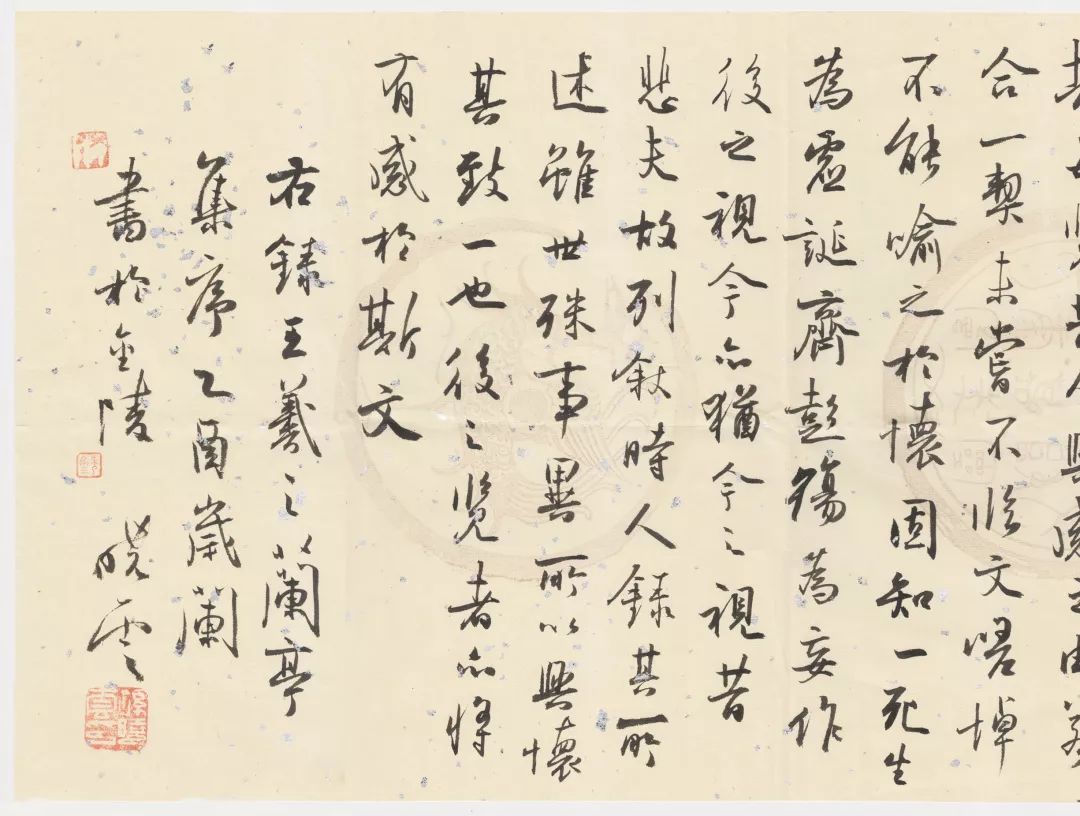 每覽昔人興感之由若
合一契未嘗不臨文嗟悼
不能喻之於懷固知一死生
為虛誕齊彭殤為妄作
後之視今亦猶今之視昔
悲夫故列敘時人錄其所
述雖世殊事異所以興懷
其致一也後之覽者亦將
有感於斯文
右錄王羲之蘭亭
集序乙酉歲闌
書於金陵 曉雲